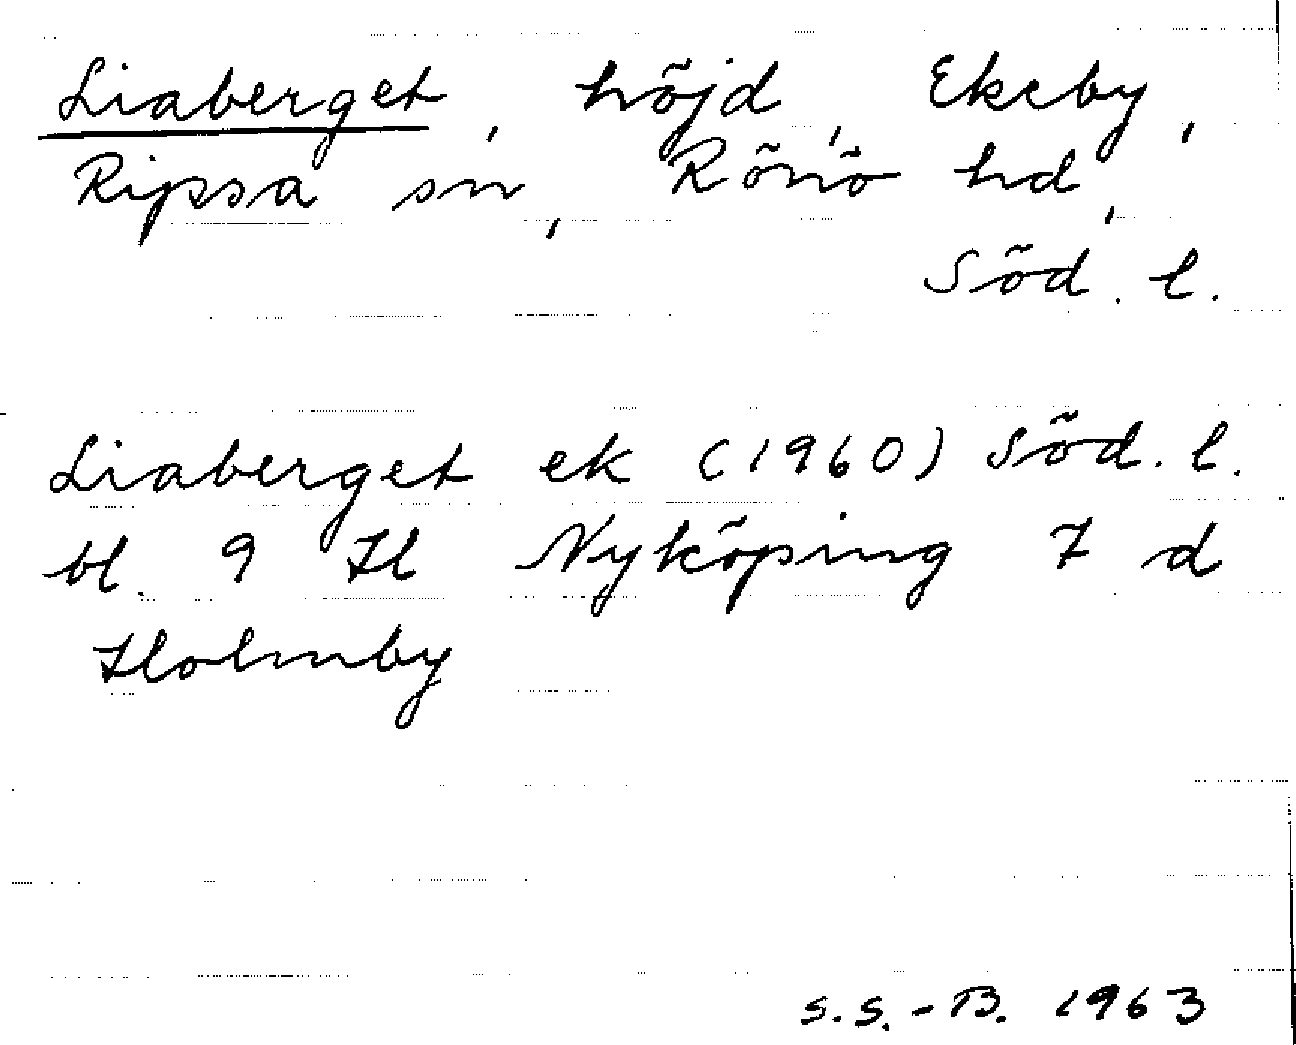 Liaberget, höjd, Ekeby,
Ripsa sn, Rönö hd,
Söd. l.
Liaberget ek (1960) Söd. l.
bl. 9 H Nyköping 7 d
Holmby
S.S.-B. 1963